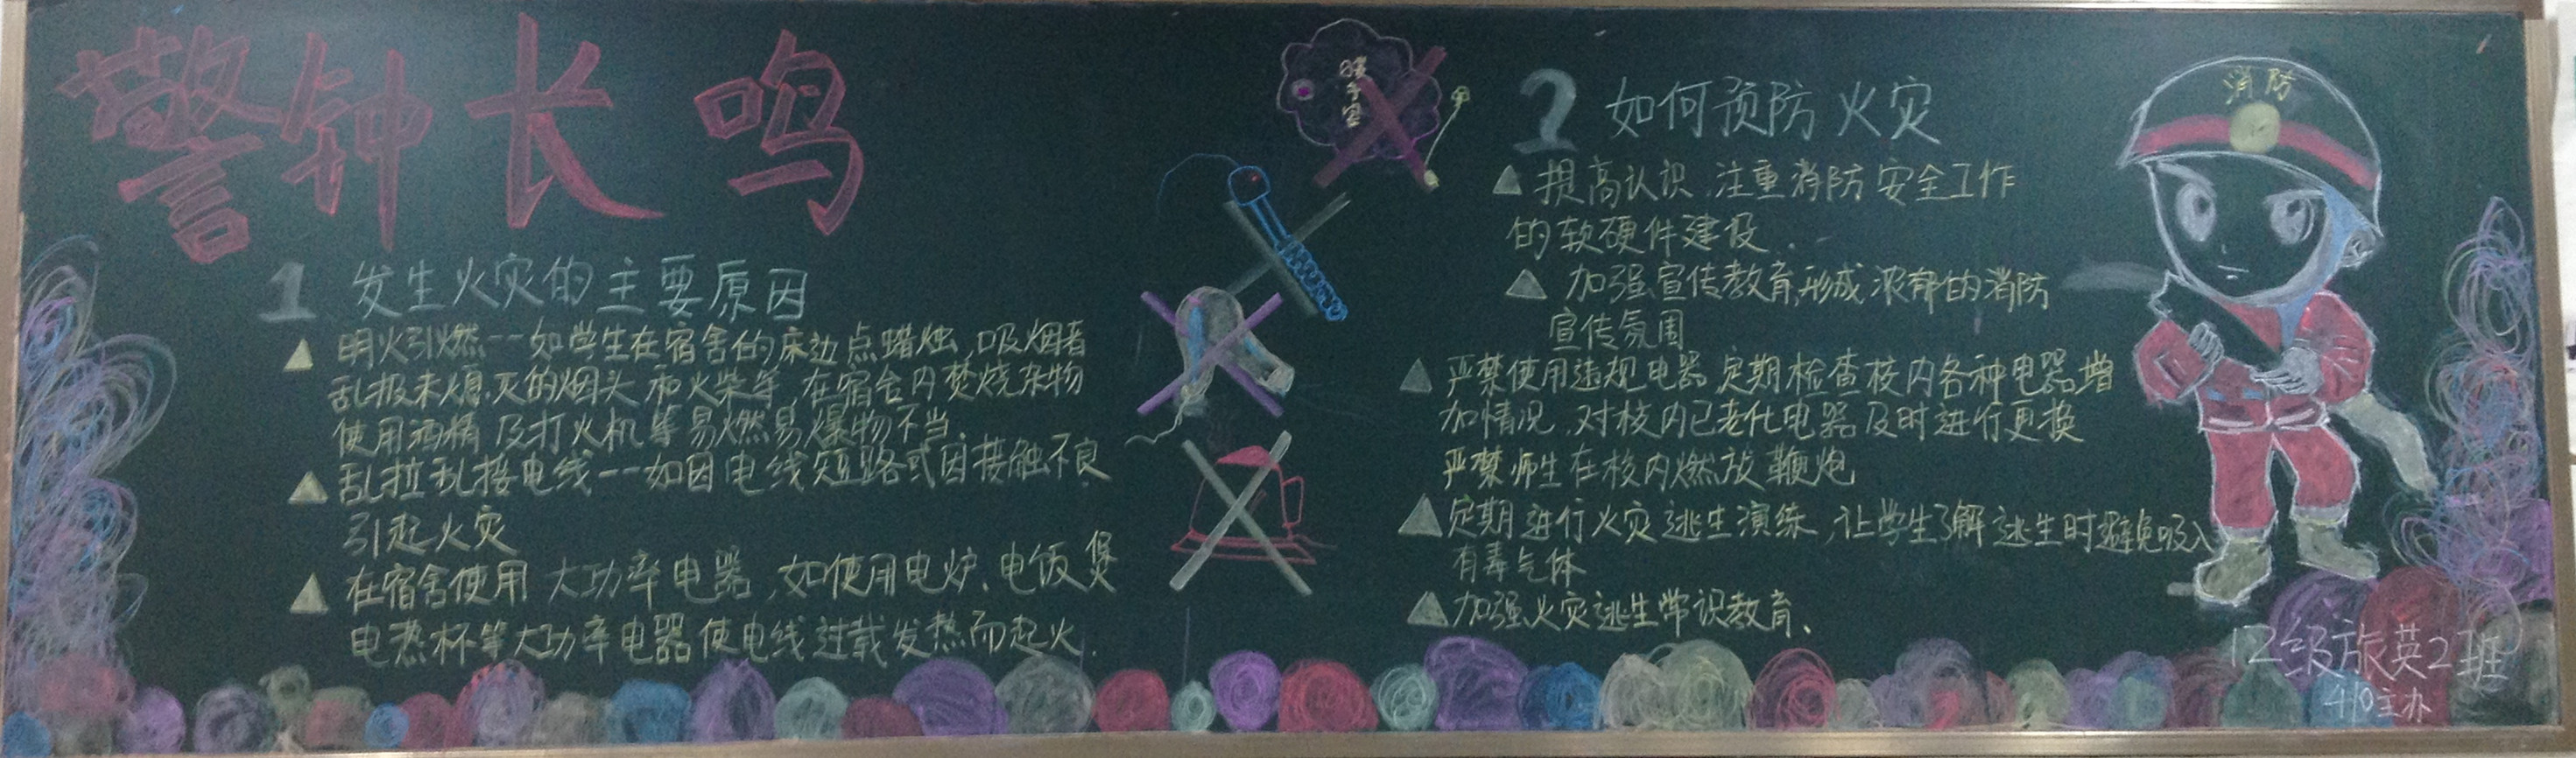 警钟长鸣
1 发生火灾的主要原因
▲ 明火引燃--如学生在宿舍的床边点蜡烛,吸烟者
乱扔未熄灭的烟头和火柴等,在宿舍内焚烧杂物
使用酒精及打火机等易燃易爆物不当.
▲ 乱拉乱接电线--如因电线短路或因接触不良
引起火灾
▲ 在宿舍使用大功率电器,如使用电炉、电饭煲
电热杯等大功率电器使电线过载发热而起火.
暖手宝
2 如何预防火灾
▲ 提高认识,注重消防安全工作
的软硬件建设.
▲ 加强宣传教育,形成浓郁的消防
宣传氛围
▲ 严禁使用违规电器 定期检查校内各种电器增
加情况,对校内已老化电器及时进行更换
严禁师生在校内燃放鞭炮
▲ 定期进行火灾逃生演练,让学生了解逃生时避免吸入
有毒气体
▲ 加强火灾逃生常识教育、
消防
12级旅英2班
410主办